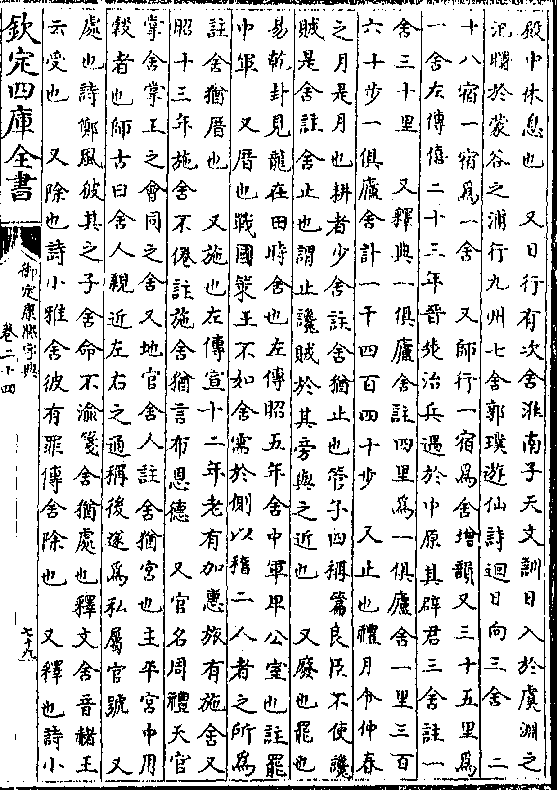 殿中休息也　又日行有次舍淮南子天文訓日入於虞淵之
汜曙於蒙谷之浦行九州七舍郭璞遊仙詩迴日向三舍　二
十八宿一宿爲一舍　又師行一宿爲舍增韻又三十五里爲
一舍左傳僖二十三年晉楚治兵遇於中原其辟君三舍註一
舍三十里　又釋典一俱廬舍註四里爲一俱廬舍一里三百
六十步一俱廬舍計一千四百四十步　又止也禮月令仲春
之月是月也耕者少舍註舍猶止也管子四稱篇良臣不使讒
賊是舍註舍止也謂止讒賊於其旁與之近也　又廢也罷也
易乾卦見龍在田時舍也左傳昭五年舍中軍卑公室也註罷
中軍　又厝也戰國策王不如舍需於側以稽二人者之所爲
註舍猶厝也　又施也左傳宣十二年老有加惠旅有施舍又
昭十三年施舍不倦註施舍猶言布恩德　又官名周禮天官
掌舍掌王之會同之舍又地官舍人註舍猶宮也主平宮中用
穀者也師古曰舍人親近左右之通稱後遂爲私屬官號　又
處也詩鄭風彼其之子舍命不渝箋舍猶處也釋文舍音赦王
云受也　又除也詩小雅舍彼有罪傳舍除也　又釋也詩小
欽定四庫全書
御定康熙字典
卷二十四
七十九